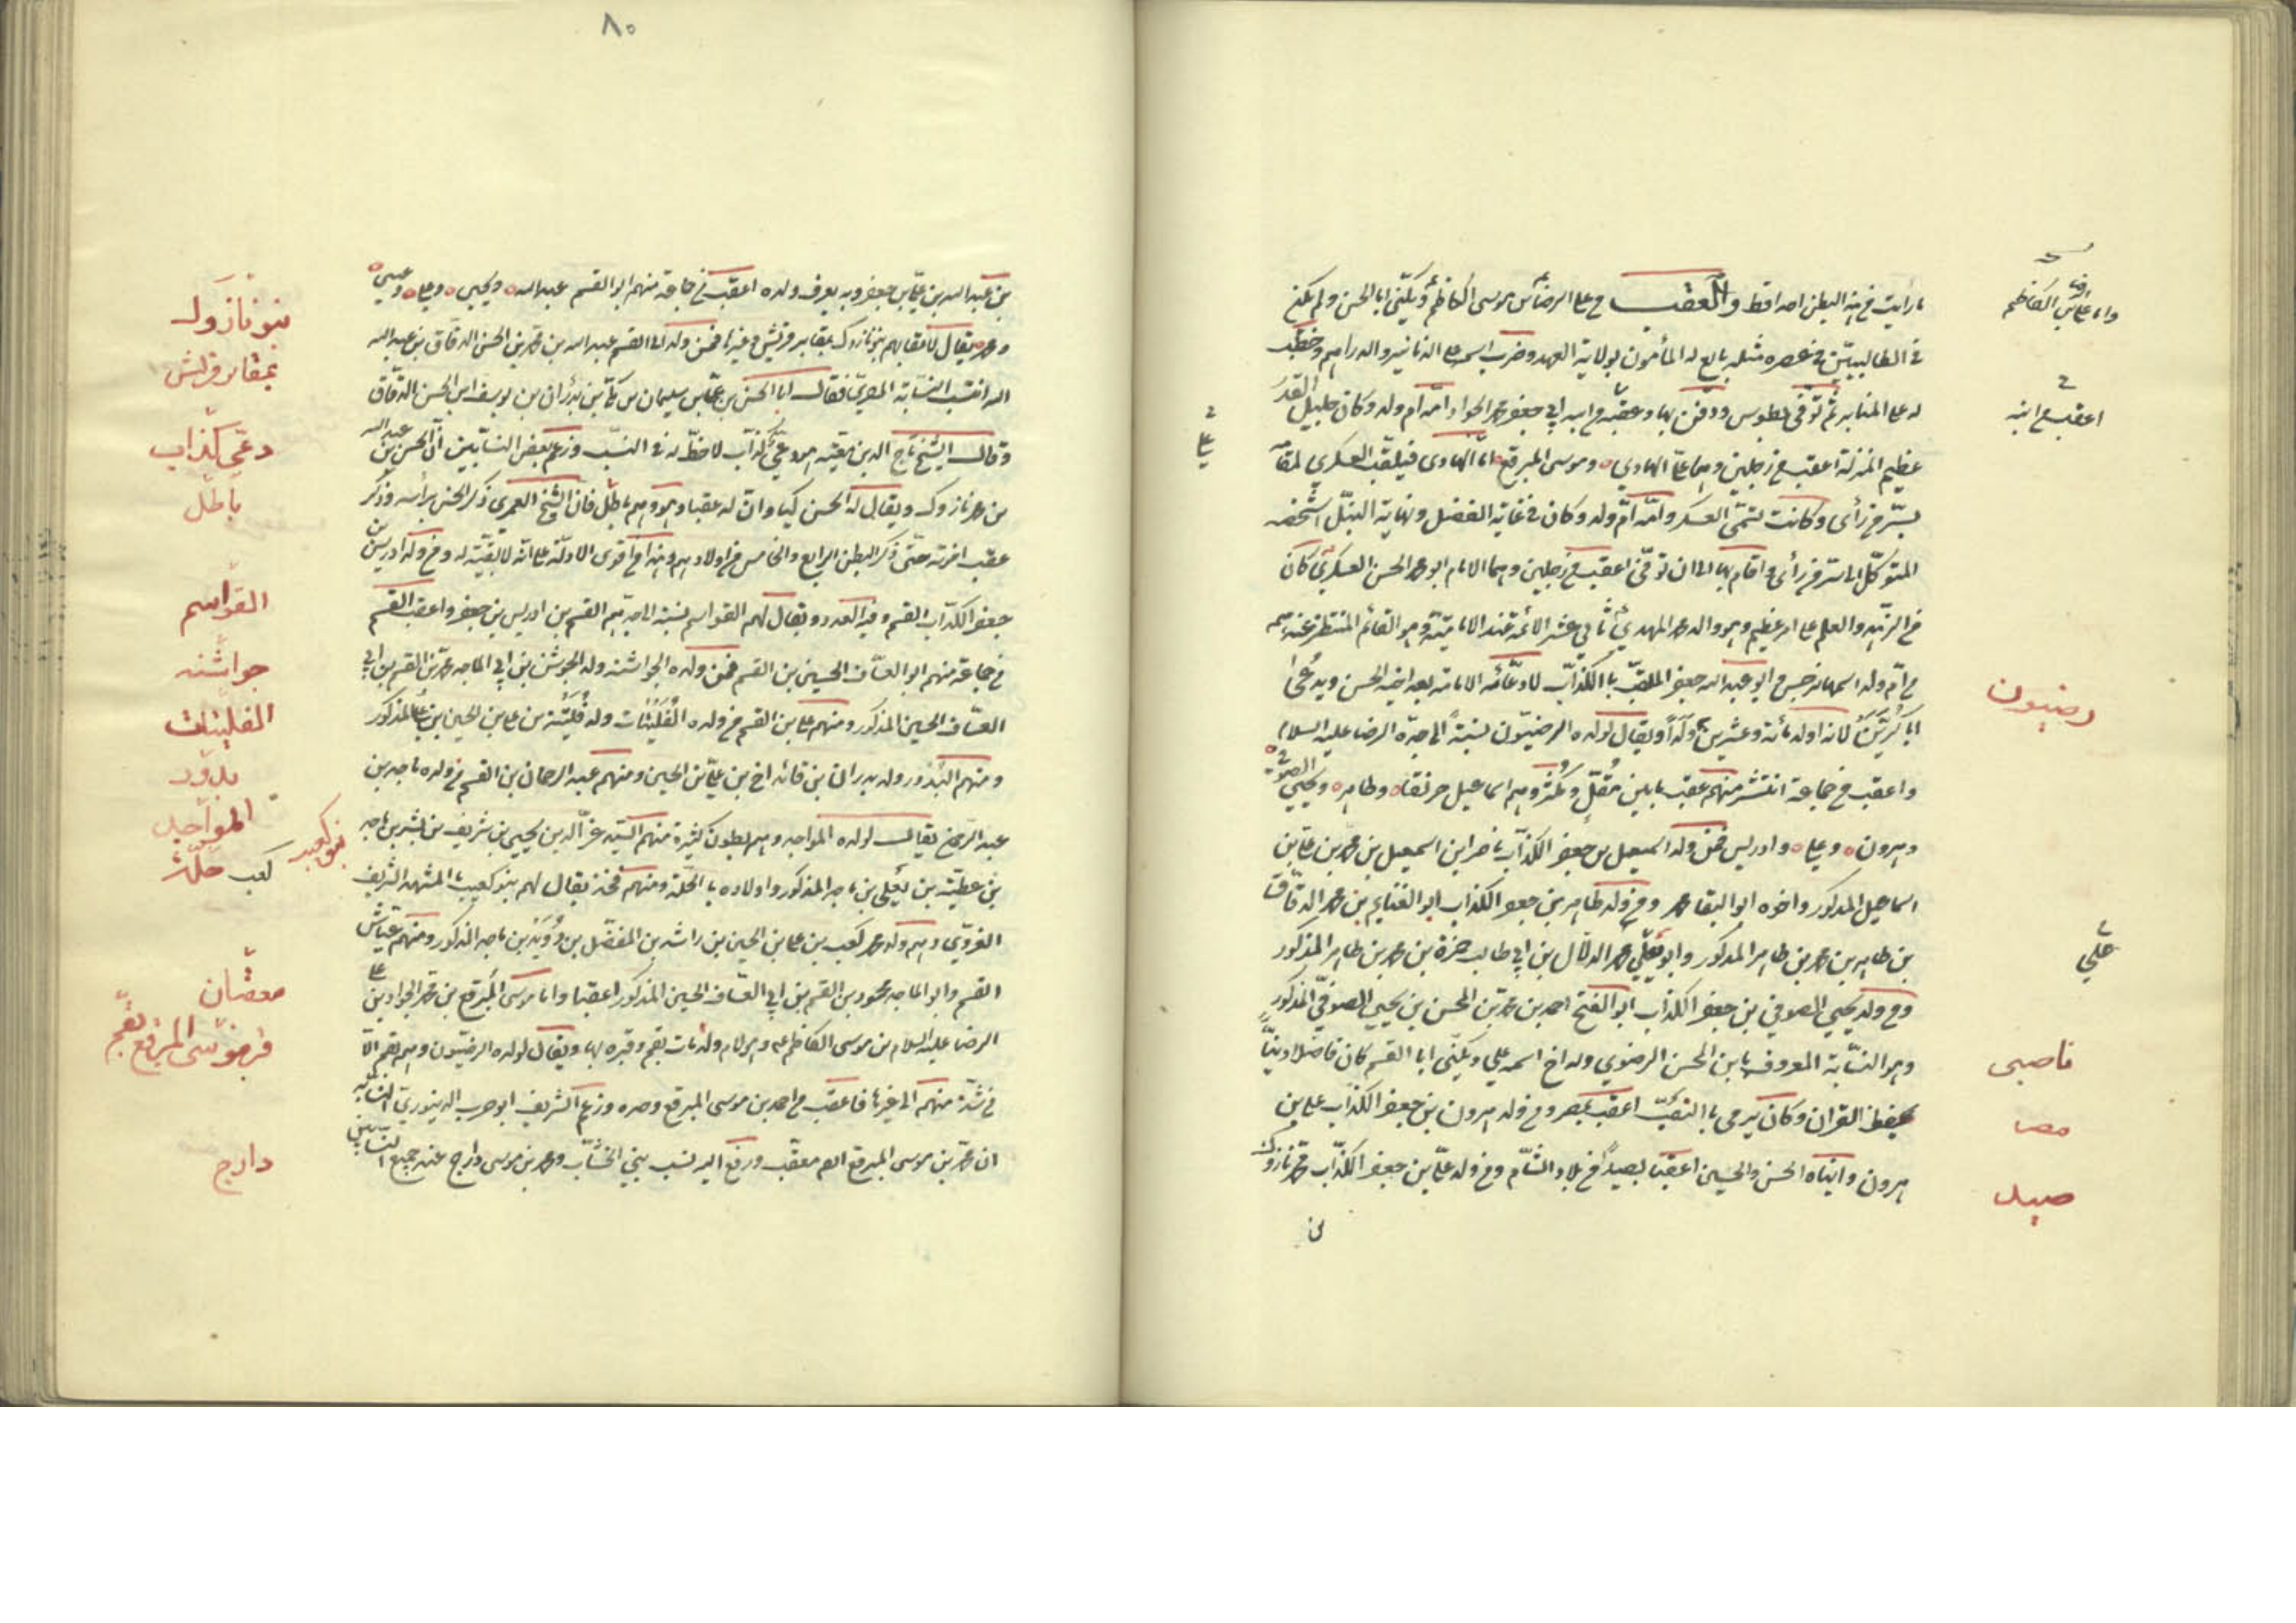 ما رأيت في هذا البطن احدا قط والعقب من علي الرضا بن موسى الكاظم ويكنى ابا الحسن ولم يكن
في الطالبيين في عصره مثله بايع له المأمون بولاية العهد وضرب اسمه على الدنانير والدراهم وخطب
له على المنابر ثم توفي بطوس ودفن بها وعقبه من ابنه ابي جعفر محمد الجواد امه ام ولد وكان جليل القدر
عظيم المنزلة اعقب من رجلين وهما علي الهادي وموسى المبرقع اما الهادي فيلقب العسكري لمقامه
بسر من رأى وكانت تسمى العسكر وامه ام ولد وكان في غاية الفضل ونهاية النبل اشخصه
المتوكل الى سر من رأى واقام بها الى ان توفي اعقب من رجلين وهما الامام ابو محمد الحسن العسكري كان
من الزهد والعلم على امر عظيم وهو والد محمد المهدي ثاني عشر الائمة عند الامامية وهو القائم المنتظر عندهم
من ام ولد اسمها نرجس و ابو عبد الله جعفر الملقب بالكذاب لادعائه الامامة بعد اخيه الحسن ويدعى
ابا كرين لانه اولد مائة وعشرين ولدا ويقال لولده الرضيون نسبة الى جده الرضا عليه السلام
واعقب من جماعة انتشر منهم عقب ما بين مقل ومكثر وهم اسماعيل حريقا وطاهر ويحيى الصوفي
وهرون وعلي وادريس فمن ولد اسمعيل بن جعفر الكذاب ناصر ابن اسمعيل بن محمد بن علي بن
اسماعيل المذكور واخوه ابو البقا محمد ومن ولد طاهر بن جعفر الكذاب ابو الغنايم بن محمد الدقاق
بن طاهر بن محمد بن طاهر المذكور وابو يعلى محمد الدلال بن ابي طالب حمزة بن محمد بن طاهر المذكور
ومن ولد يحيى الصوفي بن جعفر الكذاب ابو الفتح احمد بن محمد بن المحسن بن يحيى الصوفي المذكور
وهو النسابة المعروف بابن المحسن الرضوي وله اخ اسمه علي ويكنى ابا القسم كان فاضلا دينا
يحفظ القران وكان يرمى بالنصب اعقب بمصر ومن ولد هرون بن جعفر الكذاب علي بن
هرون وابناه الحسن والحسين اعقبا بصيدا من بلاد الشام ومن ولد علي بن جعفر الكذاب محمد نازوك
بن
واما علي بن الكاظم
اعقب من ابنه
علي
رضيون
علي
ناصبى
مصر
صيدا
٨٠
بن عبد الله بن علي بن جعفر وبه يعرف ولده اعقب من جماعة منهم ابو القسم عبد الله ويحيى وعلي وعيسى
ومحمد يقال لاعقابهم بنو نازوك بمقابر قريش وغيرها فمن ولد ابي القسم عبد الله بن محمد بن الحسن الدقاق بن عبد الله
اليه انتسب النسابة المصري فقال انا الحسن بن علي بن سليمان بن مكي بن بدران بن يوسف ابن الحسن الدقاق
وقال الشيخ تاج الدين بن معية هو دعي كذاب لا حظ له في النسب وزعم بعض النسابين ان الحسن بن عبد الله
بن محمد نازوك ويقال له الحسن كيا وان له عقبا وهو وهم باطل فان الشيخ العمري ذكر الحسن براسه وذكر
عقب اخوته حتى ذكر البطن الرابع والخامس من اولادهم وهذا من اقوى الادلة على انه لا بقية له ومن ولد ادريس بن
جعفر الكذاب القسم وفيه العدد ويقال لهم القواسم نسبة الى جدهم القسم بن ادريس بن جعفر واعقب القسم
من جماعة منهم ابو العساف الحسين بن القسم فمن ولده الجواشنة ولد الجوشن بن ابي الماجد محمد بن القسم بن ابي
العساف الحسين المذكور ومنهم علي بن القسم من ولده الفليتات ولد فليتة بن علي بن الحسين بن علي المذكور
ومنهم البدور ولد بدران بن قائد اخ بن علي بن الحسين ومنهم عبد الرحمان بن القسم من ولده ماجد بن
عبد الرحمن يقال لولده المواجد وهم بطون كثيرة منهم السيد عز الدين يحيى بن شريف بن بشير بن ماجد
بن عطية بن يعلى بن ماجد المذكور واولاده بالحلة ومنهم فخذ يقال لهم بنو كعيب بالمشهد الشريف
الغروي وهم ولد محمد كعيب بن علي بن الحسين بن راشد بن المفضل بن دويد بن ماجد المذكور ومنهم عياش
القسم وابو الماجد محمود بن القسم بن ابي العساف الحسين المذكور اعقبا واما موسى المبرقع بن محمد الجواد بن علي
الرضا عليه السلام بن موسى الكاظم وهو لام ولد مات بقم وقبره بها ويقال لولده الرضيون وهم بقم الا
من شذ منهم الى غيرها فاعقب من احمد بن موسى المبرقع وحده وزعم الشريف ابو حرب الدينوري النسابة
ان محمد بن موسى المبرقع ايضا معقب ورفع اليه نسب بني الخشاب ومحمد بن موسى دارج عند جميع النسابين
بنو نازوك
بمقابر قريش
دعي كذاب
باطل
القواسم
جواشنه
الفليتات
بدور
المواجد
بنو كعيب
كعب حلة
معقبان
قبر موسى المبرقع بقم
دارج